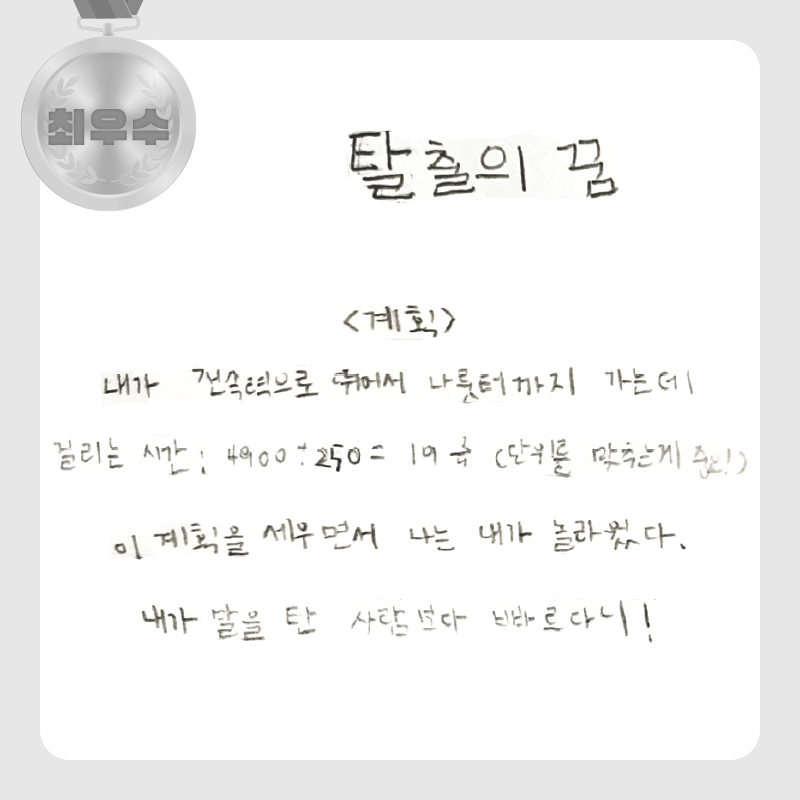 최우수
탈출의 꿈
<계획>
내가 전속력으로 뛰어서 나룻터까지 가는데
걸리는 시간: 4900÷250= 19 초 (단위를 맞추는게 중요!)
이 계획을 세우면서 나는 내가 놀라웠다.
내가 말을 탄 사람보다 빠르다니!